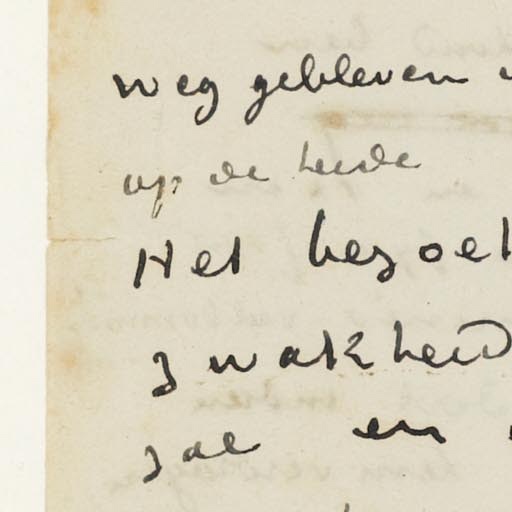 weg gebleven
op de heide
Het bezoek
zwakheid
zal en